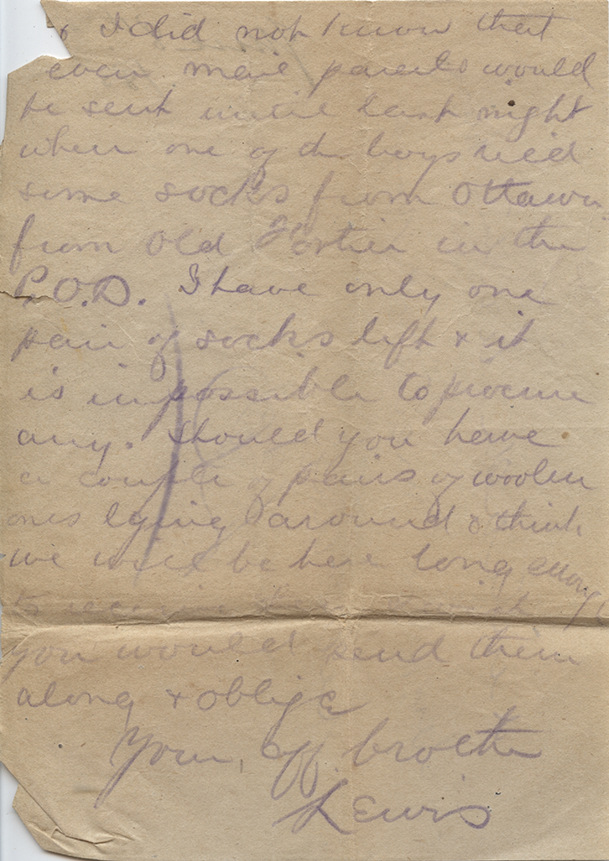 & I did not know that
even mere parents would
be sent until last night
when one of the boys rec'd
some socks from Ottawa
from Old in the
P.O.D. I have only one
pair of socks left & it
is impossible to procure
any. Should you have
a couple of pairs of woolen
ones lying around & think
we will be here long enough
to receive
you would send them
along & oblige
Your aff brother
Lewis